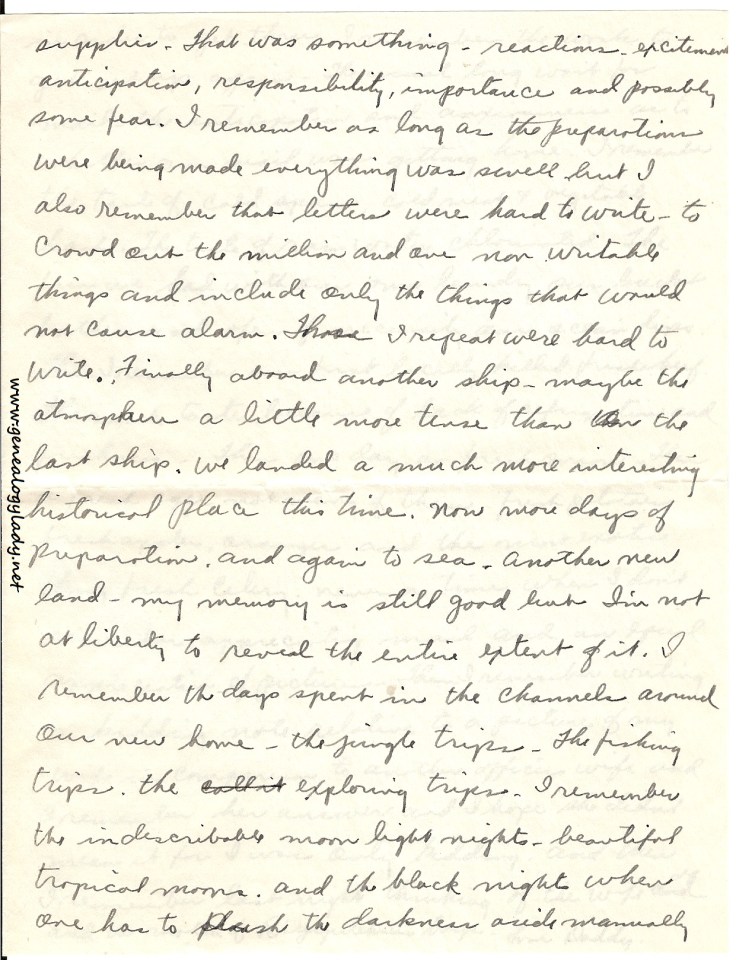 supplies - That was something - reactions - excitement
anticipation, responsibility, importance and possibly
some fear. I remember as long as the preparations
were being made everything was swell but I
also remember that letters were hard to write - to
crowd out the million and one non writable
things and include only the things that would
not cause alarm. Those I repeat were hard to
write. Finally aboard another ship - maybe the
atmosphere a little more tense than on the
last ship. We landed a much more interesting
historical place this time. Now more days of
preparation. and again to sea - Another new
land - my memory is still good but I'm not
at liberty to reveal the entire extent of it. I
remember the days spent in the channels around
our new home - the jungle trips - The fishing
trips. the call it exploring trips - I remember
the indescribable moon light nights - beautiful
tropical moons. and the black nights when
one has to push the darkness aside manually
www.genealogylady.net